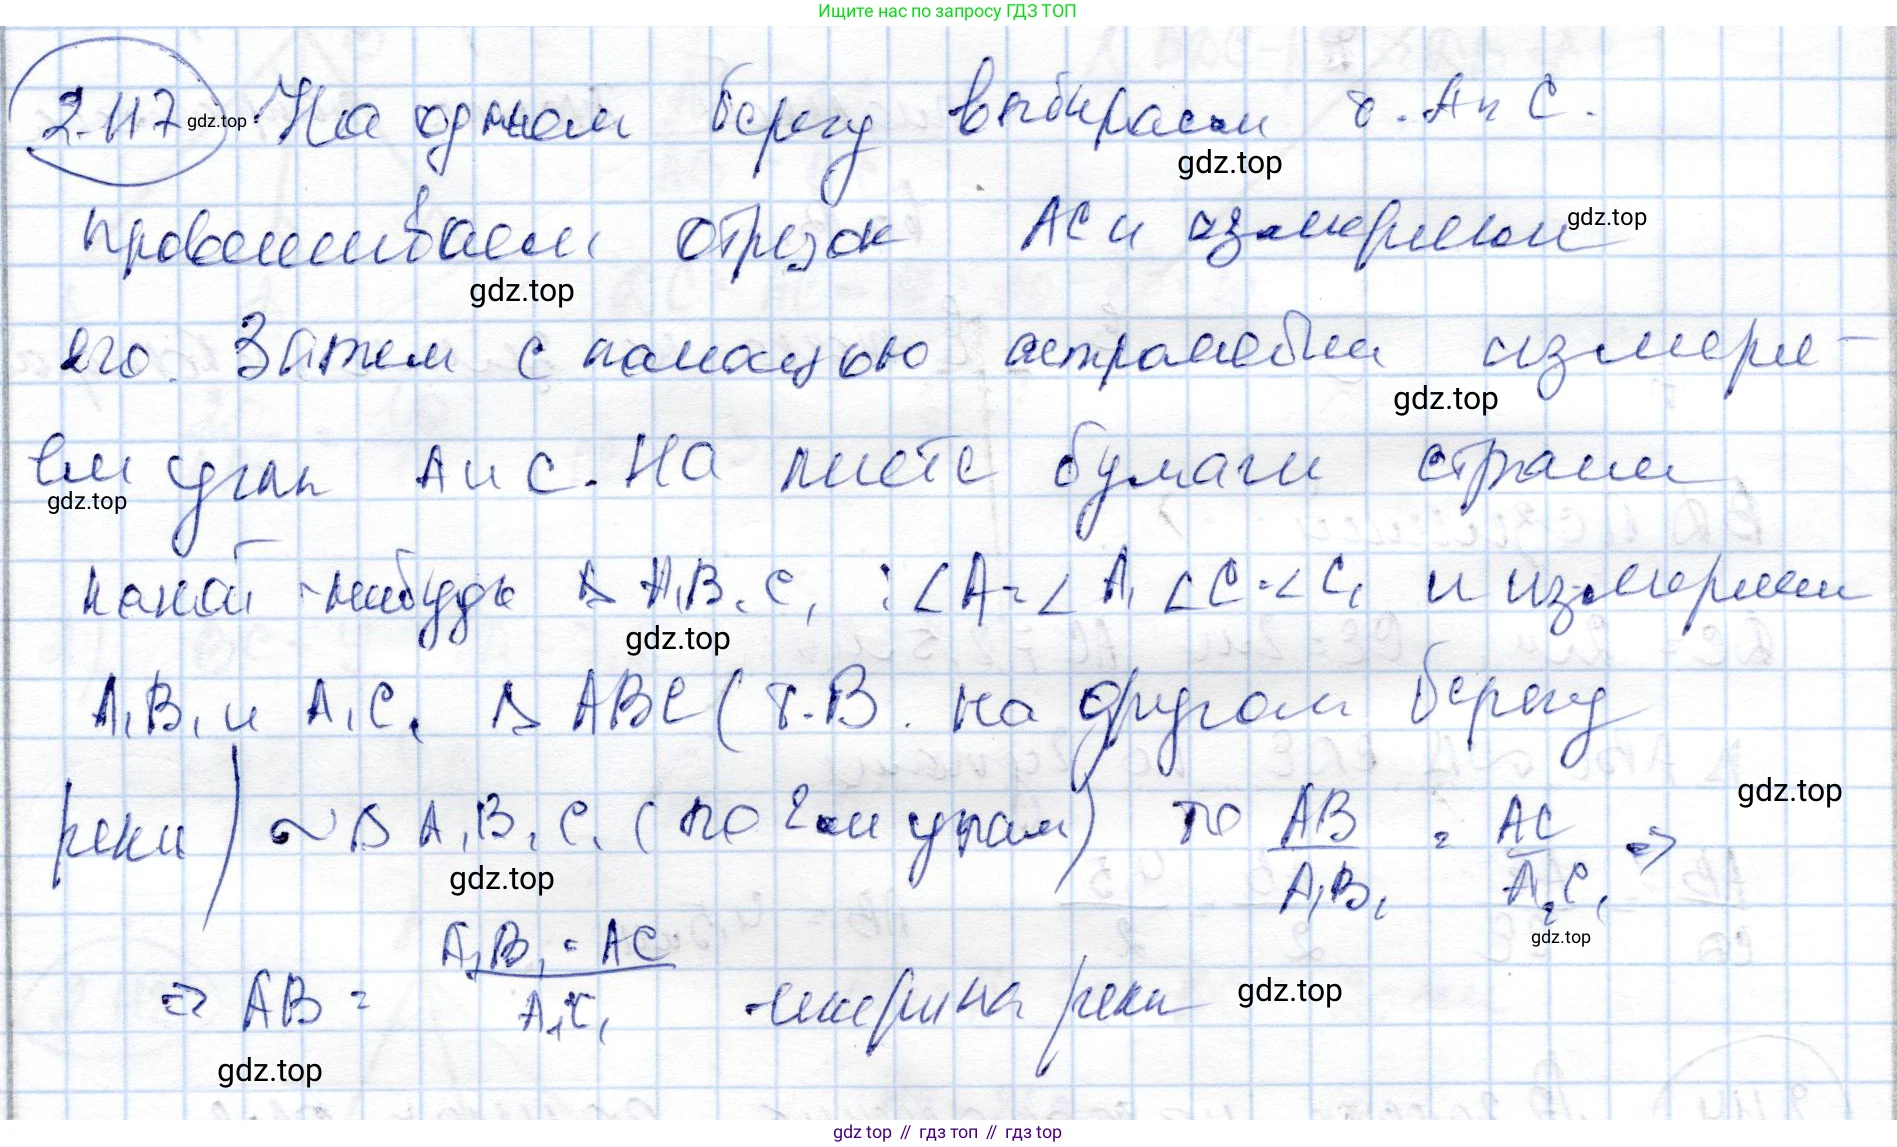 Ищите нас по запросу ГДЗ ТОП
2.117 gdz.top На одном берегу выбираем т. A и C.
gdz.top
провешиваем отрезок AC и измеряем gdz.top
gdz.top
его. Затем с помощью астролябии измеря-
gdz.top
ем углы A и C. На листе бумаги строим
gdz.top
какой-нибудь Δ A₁B₁C₁ : ∠A = ∠A₁ ∠C = ∠C₁ и измеряем
gdz.top
A₁B₁ и A₁C₁ Δ ABC (т. B на другом берегу
gdz.top
реки) ~ Δ A₁B₁C₁ (по 2-м углам) то AB/A₁B₁ = AC/A₁C₁ ⇒
gdz.top
gdz.top
⇒ AB = A₁B₁ · AC/A₁C₁ - ширина реки gdz.top
gdz.top
gdz top // гдз топ // гдз top